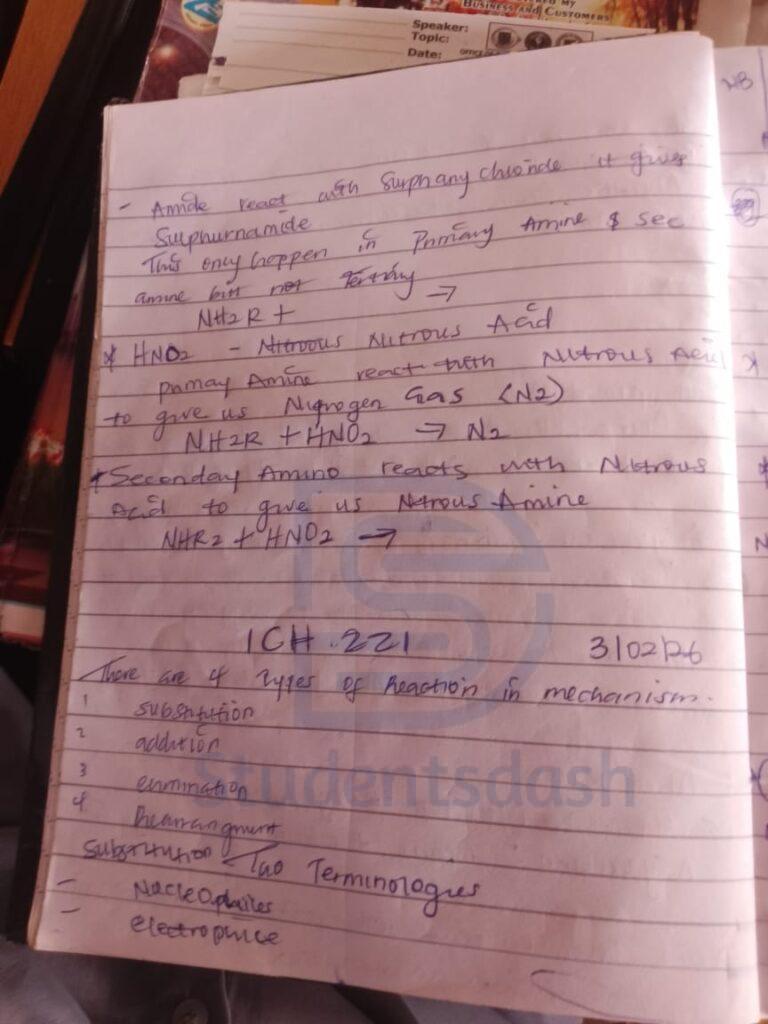 BUSINESS AND CUSTOMERS
Speaker:
Topic:
Date:
NB
- Amide react with Surphany chloride it gives
Sulphurnamide
This only happen in Primary Amine & sec
amine but not Tertiary
NH2R + →
* HNO2 - Nitroous Nitrous Acid
pamay Amine react with Nutrous Acid
to give us Nitrogen Gas (N2)
NH2R + HNO2 → N2
* Seconday Amino reacts with Nitrous
Acid to give us Nitrous Amine
NHR2 + HNO2 →
ICH 221 3/02/26
There are 4 Types of Reaction in mechanism.
1 substitution
2 addition
3 enmination
4 Rearrangment
Substitution - Two Terminologies
- Nucleophailes
- electrophile
Studentsdash